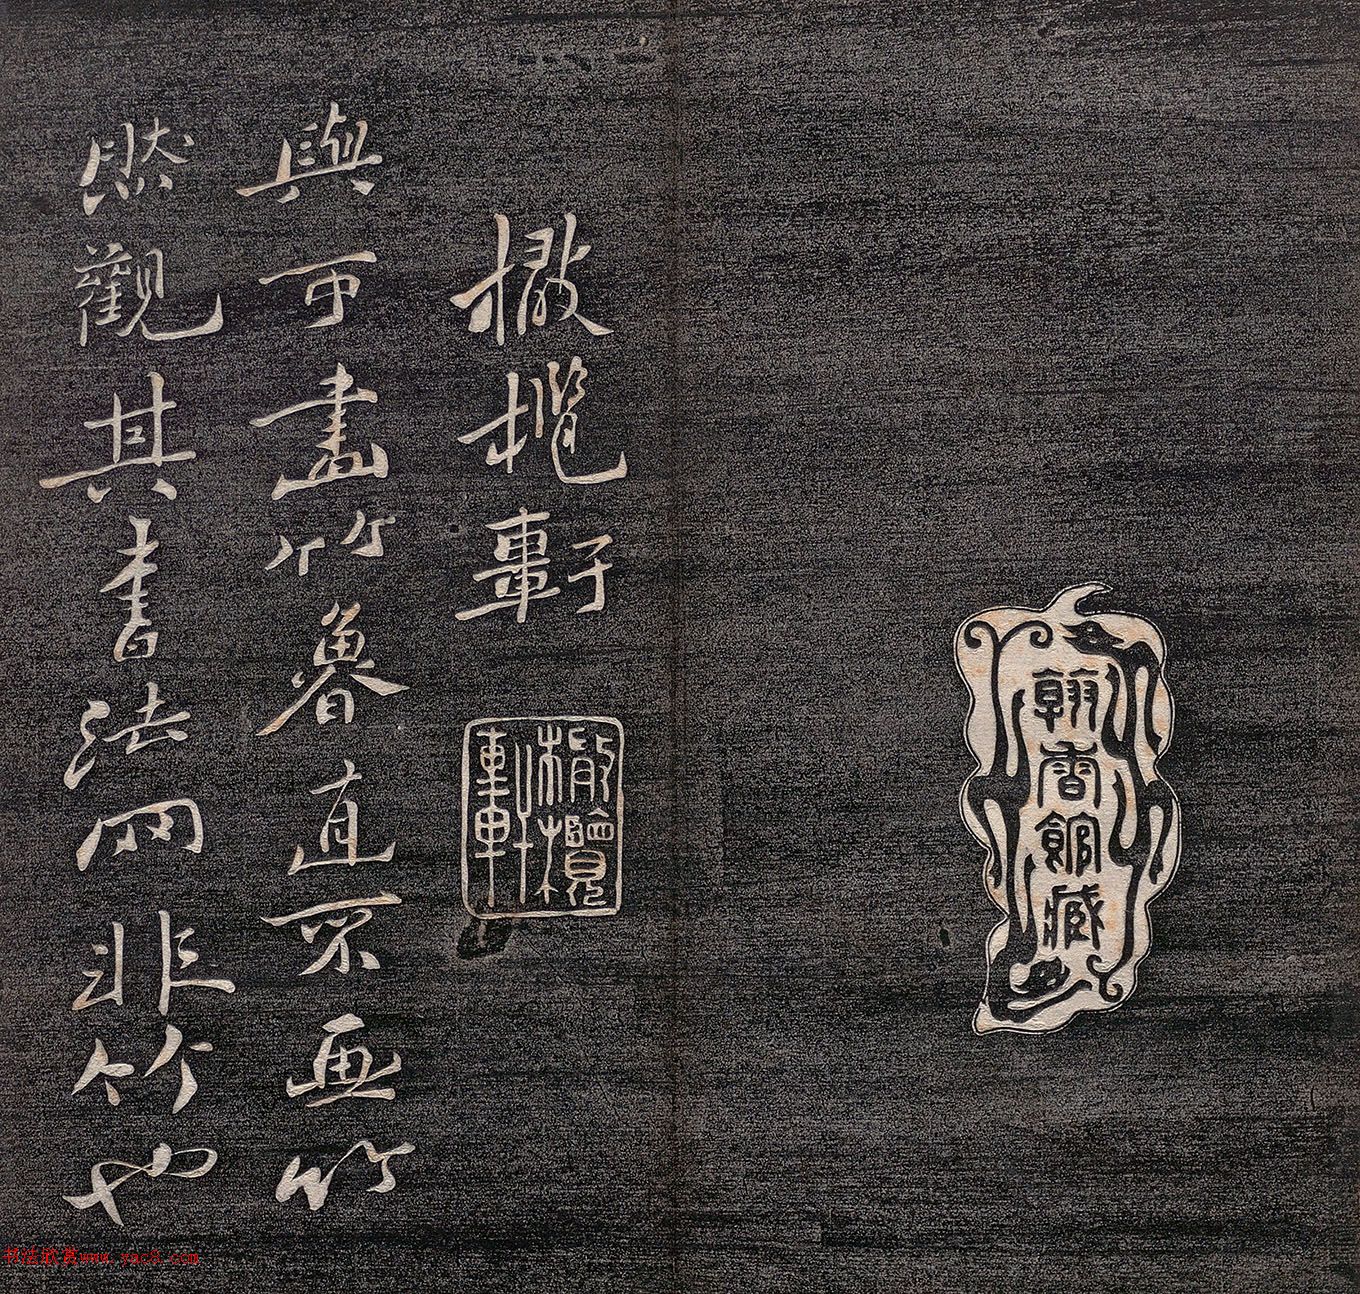 翰香館藏
橄欖軒
橄欖軒
與可畫竹魯直不畫竹
然觀其書法罔非竹也
书法欣赏www.yac8.com